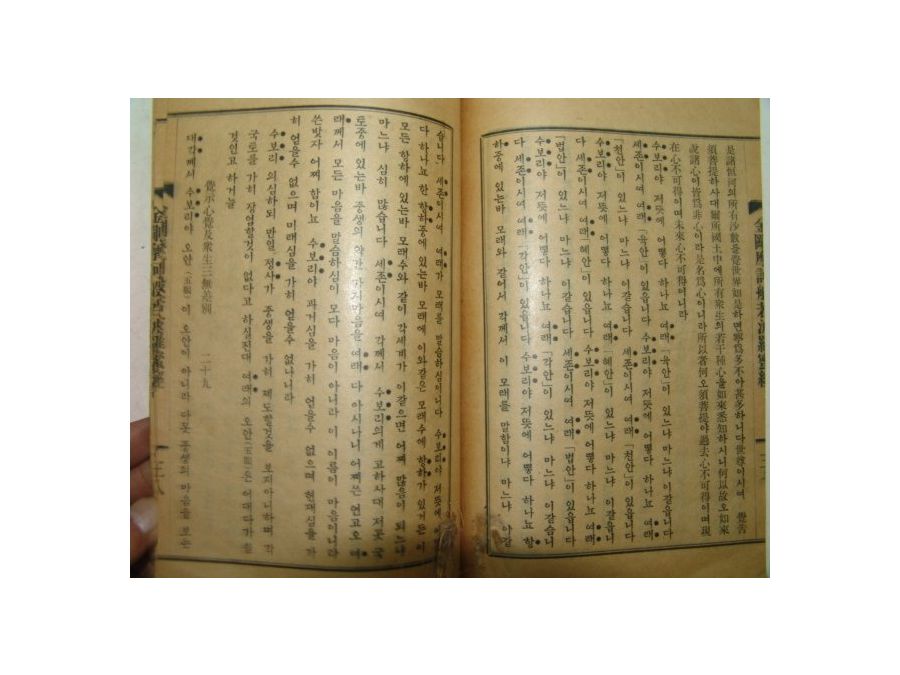 是諸恒河의所有沙數를覺世界如是하면寧爲多不아甚多하니다世尊이시여 覺告
須菩提하사대爾所國土中에所有衆生의若干種心을如來悉知하시니何以故오如來
說諸心이皆爲非心이라是名爲心이니라所以者何오須菩提야過去心不可得이며現
在心不可得이며未來心不可得이니라
수보리야 저뜻에 어떻다 하나뇨 여래「육안」이 있느냐 마느냐 이같읍니다
세존이시여 여래「육안」이 있읍니다 수보리야 저뜻에 어떻다 하나뇨 여래
「천안」이 있느냐 마느냐 이같읍니다 세존이시여 여래「천안」이 있읍니다
수보리야 저뜻에 어떻다 하나뇨 여래「혜안」이 있느냐 마느냐 이같읍니
다 세존이시여 여래「혜안」이 있읍니다 수보리야 저뜻에 어떻다 하나뇨 여래
「법안」이 있느냐 마느냐 이같읍니다 세존이시여 여래「법안」이 있읍니다
수보리야 저뜻에 어떻다 하나뇨 여래「각안」이 있느냐 마느냐 이같습니
다 세존이시여 여래「각안」이 있읍니다 수보리야 저뜻에 어떻다 하나뇨 항
하중에 있는바 모래와 같어서 각께서 이 모래를 말함이냐 마느냐 이같
습니다 세존이시여 여래가 모래를 말슴하심이니다 수보리야 저뜻에
다 하나뇨 한 항하중에 있는바 모래에 이와같은 모래수에 항하가 있거든 이
모든 항하에 있는바 모래수와 같이 각세계가 이 같으면 어찌 많음이 되느냐
마느냐 심히 많습니다 세존이시여 각께서 수보리의게 고하사대 저곳 국
토중에 있는바 중생의 약간 가지마음을 여래 다 아시나니 어찌쓴 연고오 여
래께서 모든 마음을 말슴하심이 모다 마음이 아니라 이 이름이 마음이니라
쓴밧자 어찌 함이뇨 수보리야 과거심을 가히 얻을수 없으며 현재심을 가
히 얻을수 없으며 미래심을 가히 얻을수 없나니라
수보리 의심하되 만일 정사가 중생을 가히 제도할것을 보지아니하며 각
국토를 가히 장엄할것이 없다고 하실진대 여래의 오안(五眼)은 어대다가쓸
것인고 하거늘
覺示心覺及衆生三無差別 二十九
대각께서 수보리야 오안(五眼)이 오안이 아니라 다못 중생의 마음을 보는